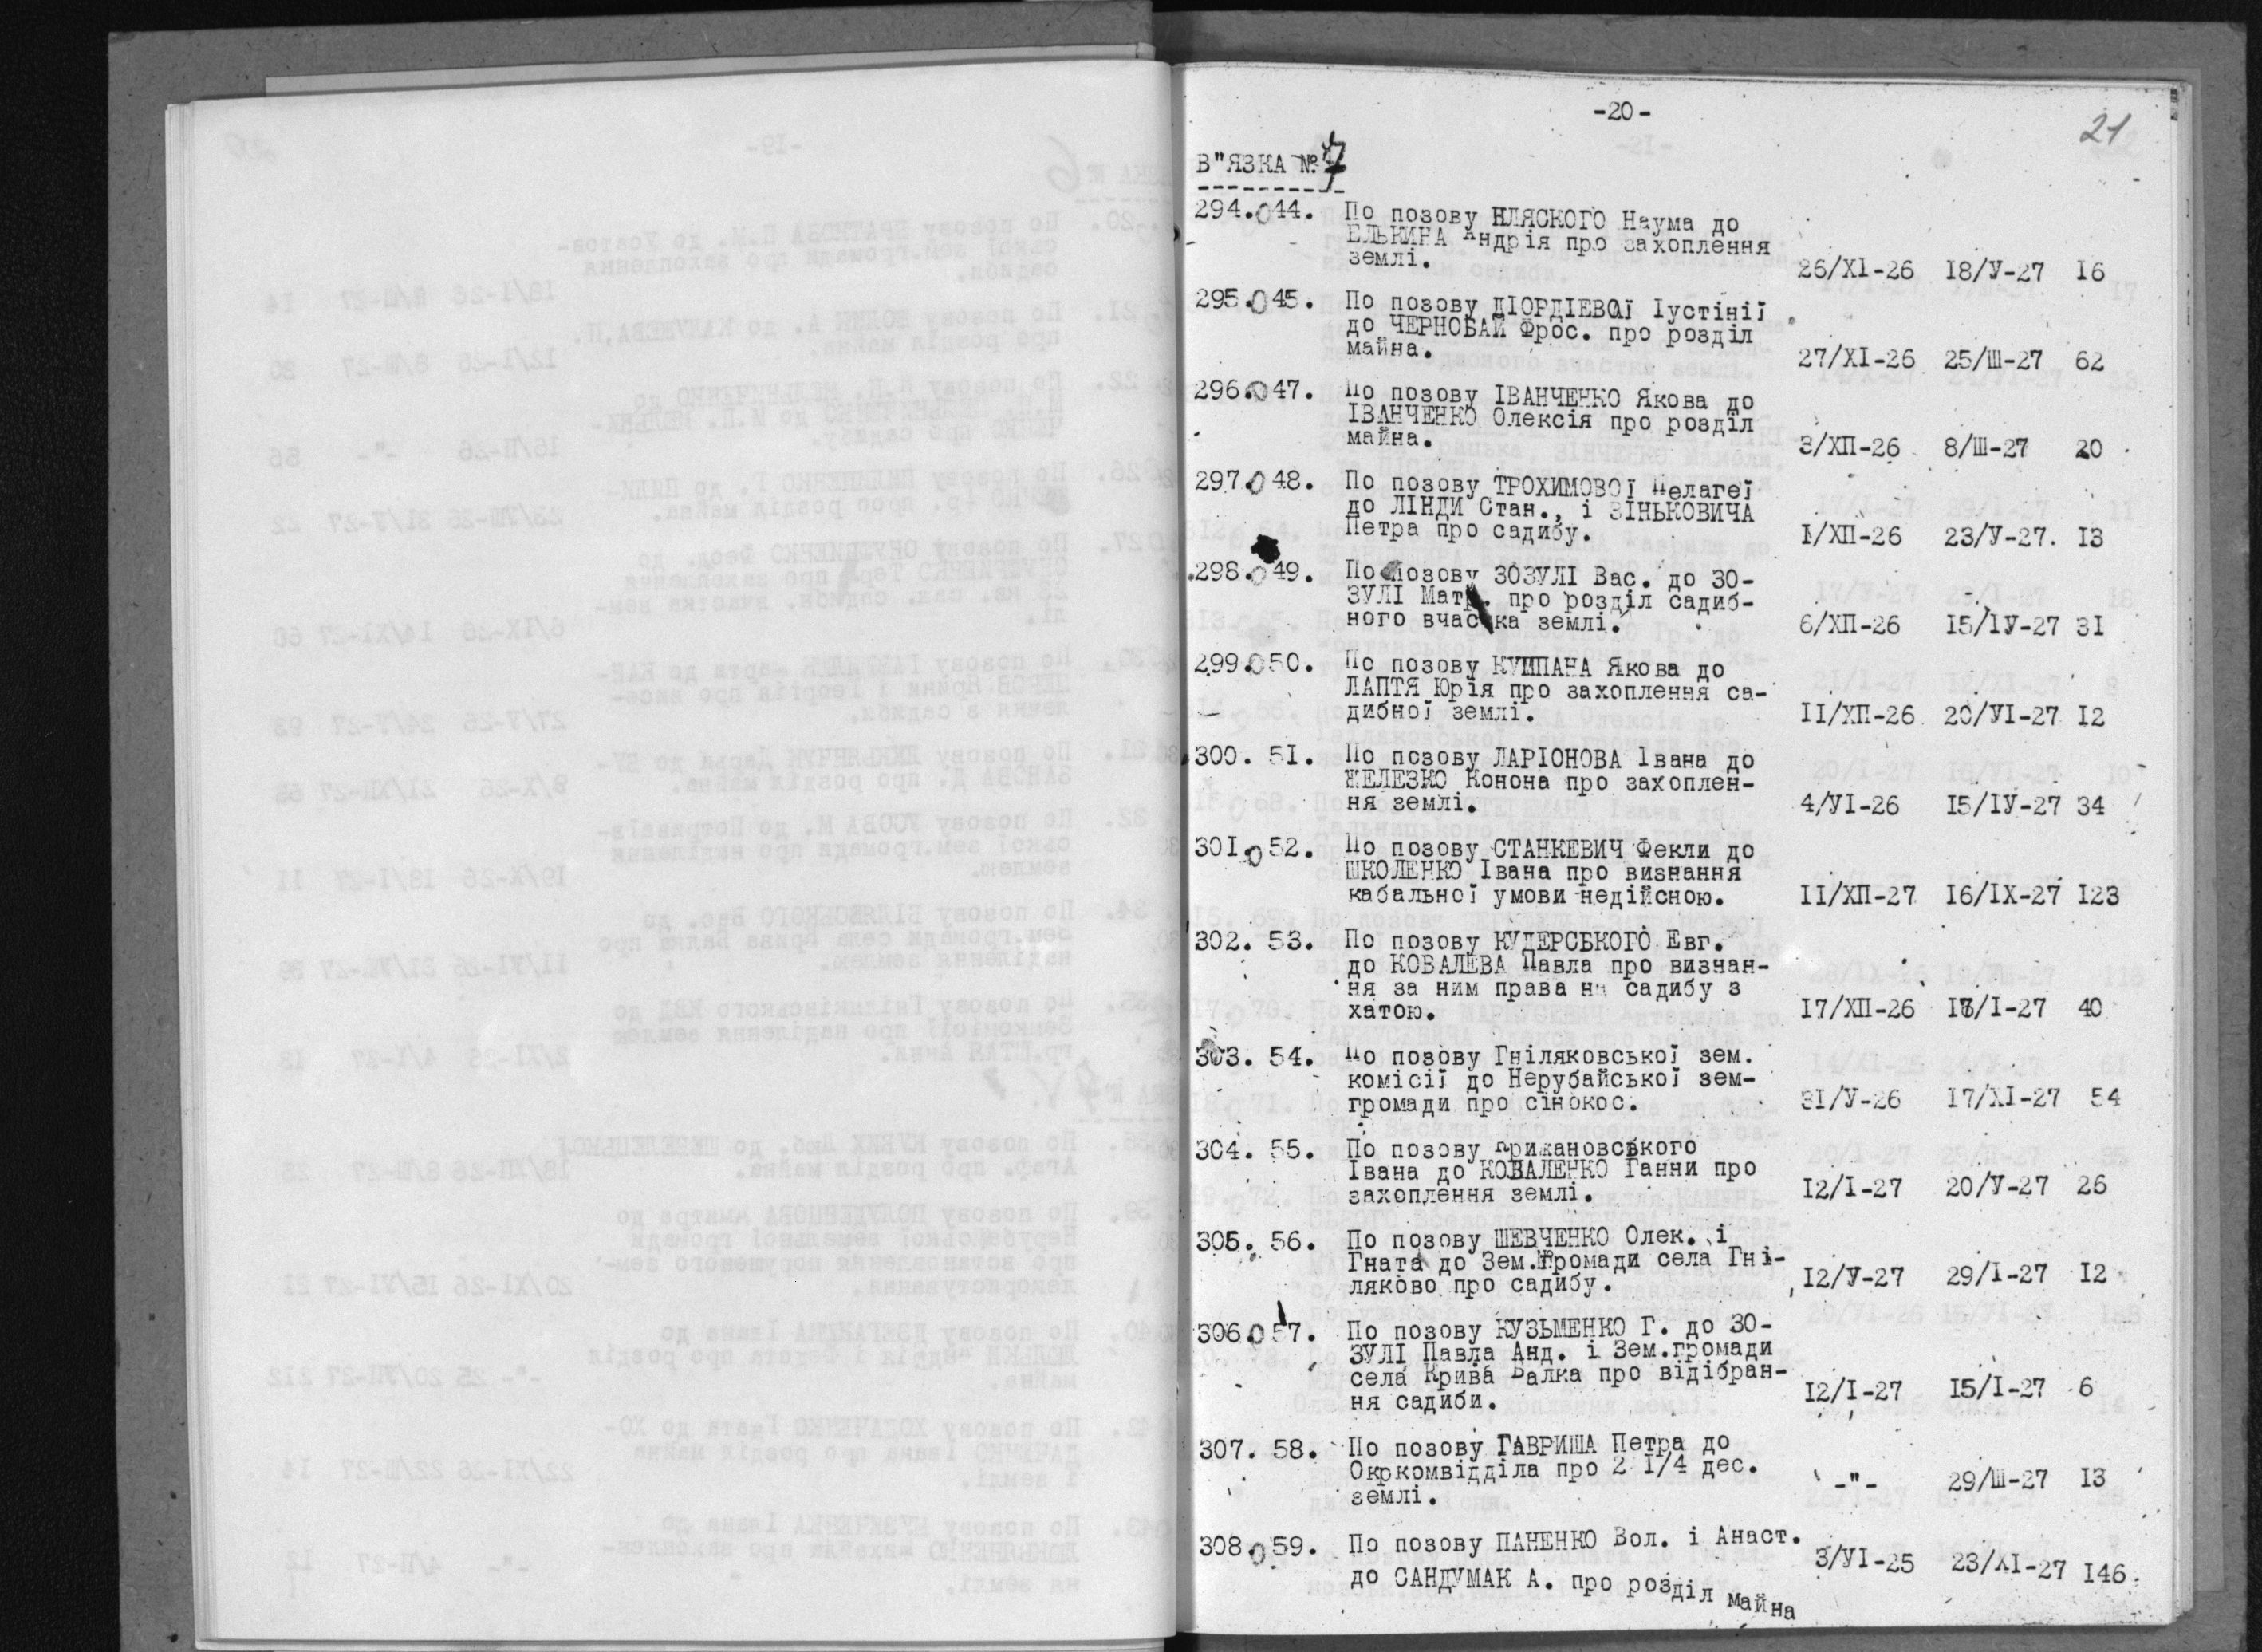 -20-
21
В"ЯЗКА № 7
294. 44. По позову НЛЯСКОГО Наума до
ЕЛЬКИНА Андрія про захоплення
землі. 26/XI-26 18/У-27 16
295. 45. По позову ДІОРДІЕВОї Іустінії
до ЧЕРНОБАЙ Фрос. про розділ
майна. 27/XI-26 25/Ш-27 62
296. 47. По позову ІВАНЧЕНКО Якова до
ІВАНЧЕНКО Олексія про розділ
майна. 3/ХП-26 8/Ш-27 20
297. 48. По позову ТРОХИМОВОї Пелагеї
до ЛІНДИ Стан., і ЗІНЬКОВИЧА
Петра про садибу. 1/ХП-26 23/У-27. 13
298. 49. По позову ЗОЗУЛІ Вас. до ЗО-
ЗУЛІ Матр. про розділ садиб-
ного вчастка землі. 6/ХП-26 15/1У-27 31
299. 50. По позову КУЦПАНА Якова до
ЛАПТЯ Юрія про захоплення са-
дибної землі. 11/ХП-26 20/УІ-27 12
300. 51. По позову ЛАРІОНОВА Івана до
ЖЕЛЕЗКО Конона про захоплен-
ня землі. 4/УІ-26 15/ІУ-27 34
301. 52. По позову СТАНКЕВИЧ Фекли до
ШКОЛЕНКО Івана про визнання
кабальної умови недійсною. 11/ХП-27 16/ІХ-27 123
302. 53. По позову КУДЕРСЬКОГО Евг.
до КОВАЛЕВА Павла про визнан-
ня за ним права на садибу з
хатою. 17/ХП-26 /І-27 40
303. 54. По позову Гніляковської зем.
комісії до Нерубайської зем-
громади про сінокос. 31/У-26 17/ХІ-27 54
304. 55. По позову Крижановського
Івана до КОВАЛЕНКО Ганни про
захоплення землі. 12/І-27 20/У-27 26
305. 56. По позову ШЕВЧЕНКО Олек. і
Гната до Зем.громади села Гні-
ляково про садибу. 12/У-27 29/І-27 12
306. 57. По позову КУЗЬМЕНКО Г. до ЗО-
ЗУЛІ Павла Анд. і Зем.громади
села Крива Балка про відібран-
ня садиби. 12/І-27 15/І-27 6
307. 58. По позову ГАВРИША Петра до
Окркомвідділа про 2 1/4 дес.
землі. -"- 29/Ш-27 13
308. 59. По позову ПАНЕНКО Вол. і Анаст.
до САНДУМАК А. про розділ майна 3/УІ-25 23/ХІ-27 146